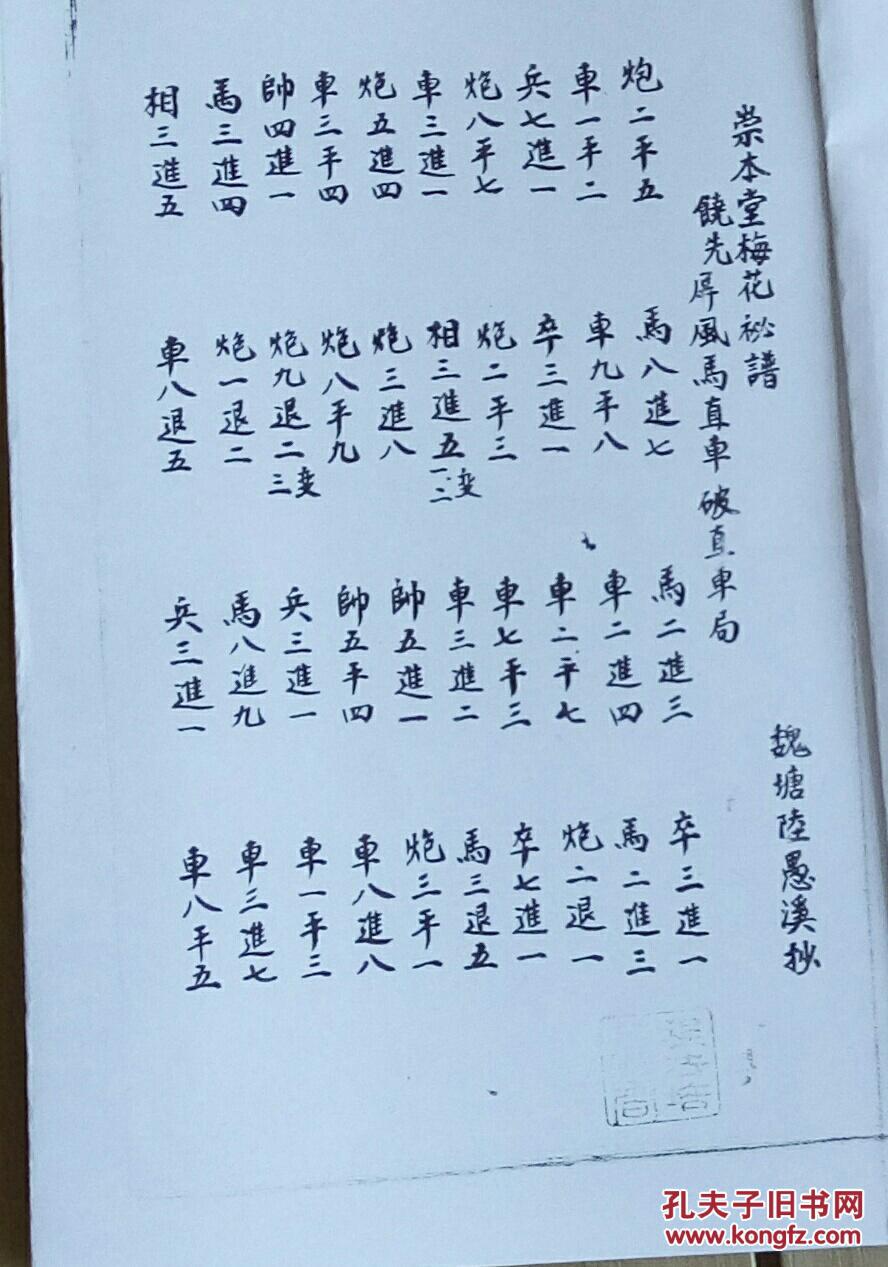 崇本堂梅花祕譜 魏塘陸愚溪抄
饒先屏風馬直車破直車局
炮二平五 馬八進七 馬二進三 卒三進一
車一平二 車九平八 車二進四 馬二進三
兵七進一 卒三進一 車二平七 炮二退一
炮八平七 炮二平三 車七平三 卒七進一
車三進一 相三進五 一二变 車三進二 馬三退五
炮五進四 炮三進八 帥五進一 炮三平一
車三平四 炮八平九 帥五平四 車八進八
帥四進一 炮九退二 三变 兵三進一 車一平三
馬三進四 炮一退二 馬八進九 車三進七
相三進五 車八退五 兵三進一 車八平五
孔夫子旧书网
www.kongfz.com